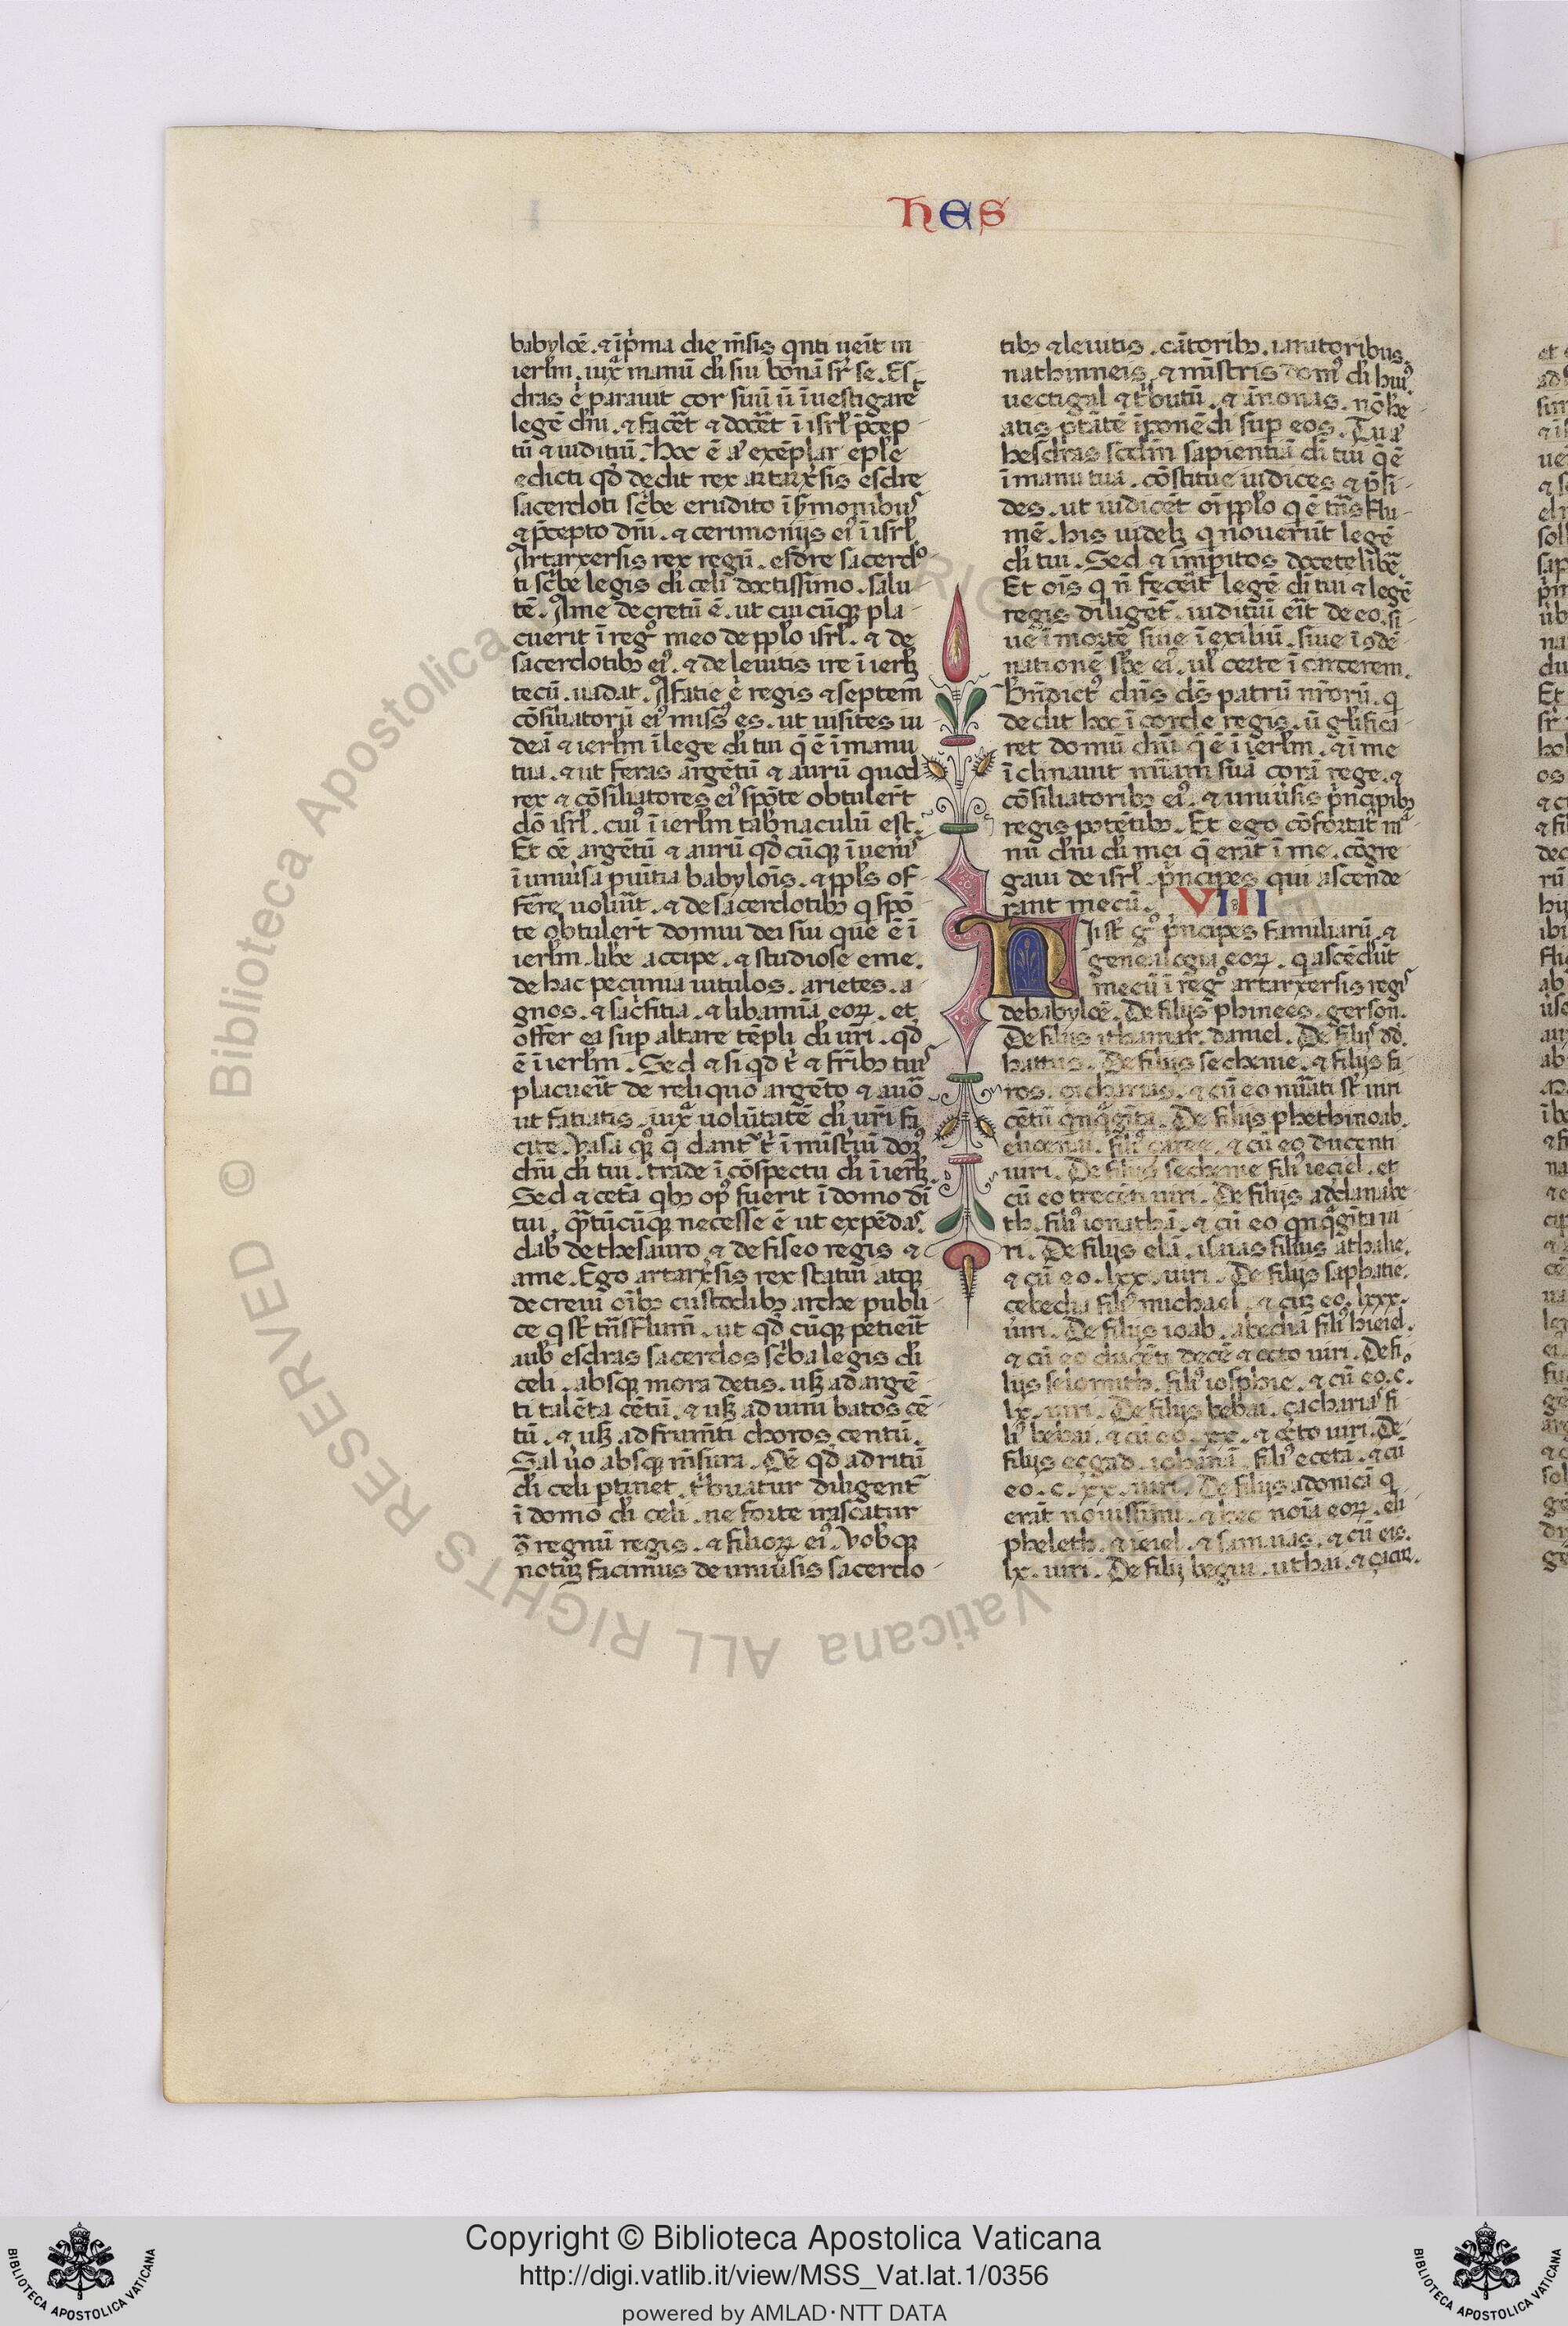 hes
babyloē. ⁊ ip̃ma die m̃sis qnti ueīt in
ierl̃m. iuxͣ manū di sui bonā sr̃ se. Es-
dras .n. parauit cor suū ū īuestigaret
legē dn̄i. ⁊ facēt ⁊ docēt ī isrl̃ p̃cep-
tū ⁊ iuditiū. Hoc ē aͧ exēplar ep̃le
edicti qd̃ dedit rex artarx̃sis esdre
sacerdoti sc̃be erudito ī s̃monibus
⁊ p̃cepto dn̄i. ⁊ cerimonijs ei᾽ ī isrl̃
Artarxersis rex regū. esdre sacerdo-
ti sc̃be legis di celi doctissimo. salu-
tē. A me decretū ē. ut cui cūq; pla-
cuerit ī regͦ meo de pplo isrl̃. ⁊ de
sacerdotib; ei᾽. ⁊ de leuitis ire ī ierl̃z
tecū. uadat. A fatie .n. regis ⁊ septem
cōsiliatorū ei᾽ miss᾽ es. ut uisites iu
deā ⁊ ierl̃m ī lege di tui q̄ ē ī manu
tua. ⁊ ut feras argētū ⁊ aurū quod
rex ⁊ cōsiliatores ei᾽ spōte obtuler̃t
dō isrl̃. cui᾽ ī ierl̃m tab̃naculū est.
Et oē argētū ⁊ aurū qd̃ cūq; īueñis
ī uniũsa p̃uītia babylois. ⁊ ppl̃s of
fer̃e uolũit. ⁊ de sacerdotib; q spō
te obtuler̃t domui dei sui que ē ī
ierl̃m. lib̃e accipe. ⁊ studiose eme.
de hac pecunia uitulos. arietes. a-
gnos. ⁊ sac̃fitia. ⁊ libamīa eoꝝ. et
offer ea sup altare tēpli di ur̃i. qd̃
ē ī ierl̃m. Sed ⁊ si qd t̃ ⁊ fr̃ib; tuis
placueīt de reliquo argēto ⁊ auro
ut fatiatis. iuxͣ uolūtatē di ur̃i fa
cite. Vasa q; q̄ dant᾽ t̃ ī mist̃iū dom᾽
dn̄i di tui. trade ī cōspectu di ī ierl̃z.
Sed ⁊ cet̃a qb; op᾽ fuerit ī domo di
tui. q̃tūcūq; necesse ē ut expēdas.
dab̃ de thesauro. ⁊ de fisco regis ⁊
a me. Ego artarx̃sis rex statui atq;
decreui oīb; custodib; arche publi-
ce q st̃ tn̄s flum̄. ut qd̃ cūq; petieīt
aub̃ esdras sacerdos sc̃ba legis di
celi. absq; mora detis. usq; ad argē-
ti talēta cētū. ⁊ usq; ad uini batos cē-
tū. ⁊ usq; ad frum̃ti choros centū.
Sal uo absq; m̃sura. Oē qd̃ ad ritū
di celi ptinet. t̃buatur diligent̃
ī domo di celi. ne forte irascatur
9̃ regnū regis. ⁊ filioꝝ ei᾽. Vob̃q;
notūz facimus de uniũsis sacerdo-
tib; ⁊ leuitis. cātorib;. ianitoribus.
nathinneis. ⁊ mīstris dom᾽ di hui᾽.
uectigal ⁊ t̃butū. ⁊ ānonas. nō he
atis p̃tātē īponēdi sup eos. Tu aͧ
hesdras scd̃m sapientiā di tui q̄ ē
ī manu tua. cōstitue iudices ⁊ p̃si-
des. ut iudicēt oī pplo q ē tn̄s flu-
mē. his uidelz q nouerūt legē
di tui. Sed ⁊ imp̃itos docete lib̃e
Et ois q ñ feceīt legē di tui ⁊ legē
regis diligēt̃. iuditiū eīt de eo. si-
ue ī mortē siue ī exiliū. siue ī 9dē-
nationē sb̃e ei᾽. ul̃ certe ī carcerem.
Bn̄dict᾽ dn̄s ds̄ patrū nr̃orū. q
dedit hoc ī corde regis. ū gl̃ifica-
ret domū dn̄i q̄ ē ī ierl̃m. ⁊ ī me
īclinauit m̃iam suā corā rege. ⁊
cōsiliatorib; ei᾽. ⁊ uniũsis p̃ncipib;
regis potētib;. Et ego cōfortat᾽ ma-
nu dn̄i di mei q̄ erat ī me. cōgre
gaui de isrl̃ p̃ncipes qui ascende-
rant mecū. VIII
Hi st̃ gͦ p̃ncipes familiarū. ⁊
genealogia eoꝝ. q ascēdūt
mecū ī regͦ artarxersis regis
de babyloē. De filijs phinees. gerson.
De filijs ithamar. daniel. De filijs dd.
hattus. De filijs sechenie. ⁊ filijs fa
ros. çacharias. ⁊ cū eo nũati st̃ uiri
cētū qnqͣgīta. De filijs phethmoab.
elioenai. fili᾽ çaree. ⁊ cū eo ducenti
uiri. De filijs secheme fili᾽ ieciel. et
cū eo trecēti uiri. De filijs addan. abe-
th. fili᾽ ionathā. ⁊ cū eo qnqͣgīta ui
ri. De filijs elā. isaias filius athalie.
⁊ cū eo. lxx. uiri. De filijs saphatie.
cebedia fili᾽ michael. ⁊ cuz eo. lxxx.
uiri. De filijs ioab. abedia fili᾽ hieiel.
⁊ cū eo ducēti decē ⁊ octo uiri. De fi-
lijs selomith. fili᾽ iosphie. ⁊ cū eo. c.
lx. uiri. De filijs bebai. çacharias fi
li᾽ bebai. ⁊ cū eo. xx. ⁊ octo uiri. De
filijs ecgad. iohānā. fili᾽ ecetā. ⁊ cū
eo. c. xx. uiri. De filijs adonicā q
erāt nouissimi. ⁊ hec noīa eoꝝ. eli
pheleth. ⁊ ieiel. ⁊ samaias. ⁊ cū eis.
lx. uiri. De filij begui. uthai. ⁊ çacur.
Copyright © Biblioteca Apostolica Vaticana
http://digi.vatlib.it/view/MSS_Vat.lat.1/0356
powered by AMLAD·NTT DATA
BIBLIOTECA APOSTOLICA VATICANA
BIBLIOTECA APOSTOLICA VATICANA
© Biblioteca Apostolica Vaticana ALL RIGHTS RESERVED